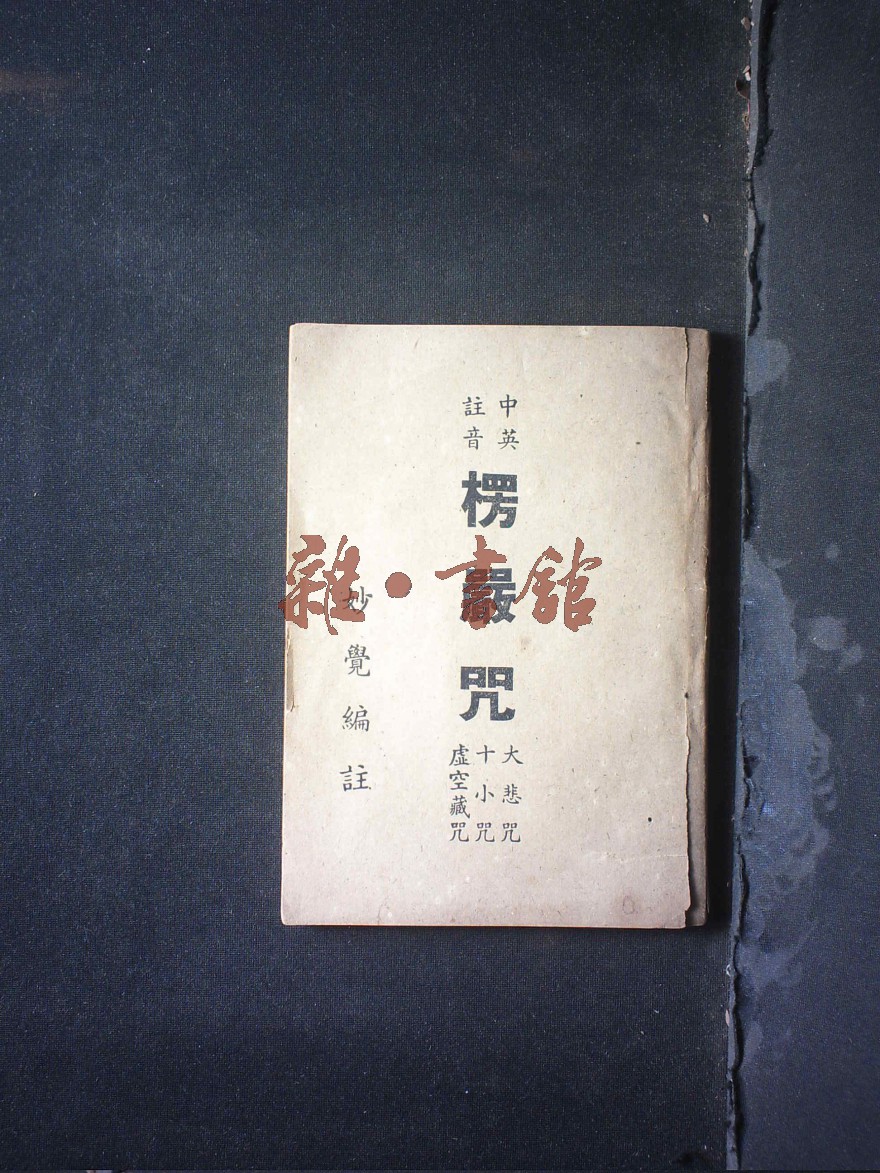 中英
註音
楞嚴咒
大悲咒
十小咒
虛空藏咒
妙覺編註
雜·書館